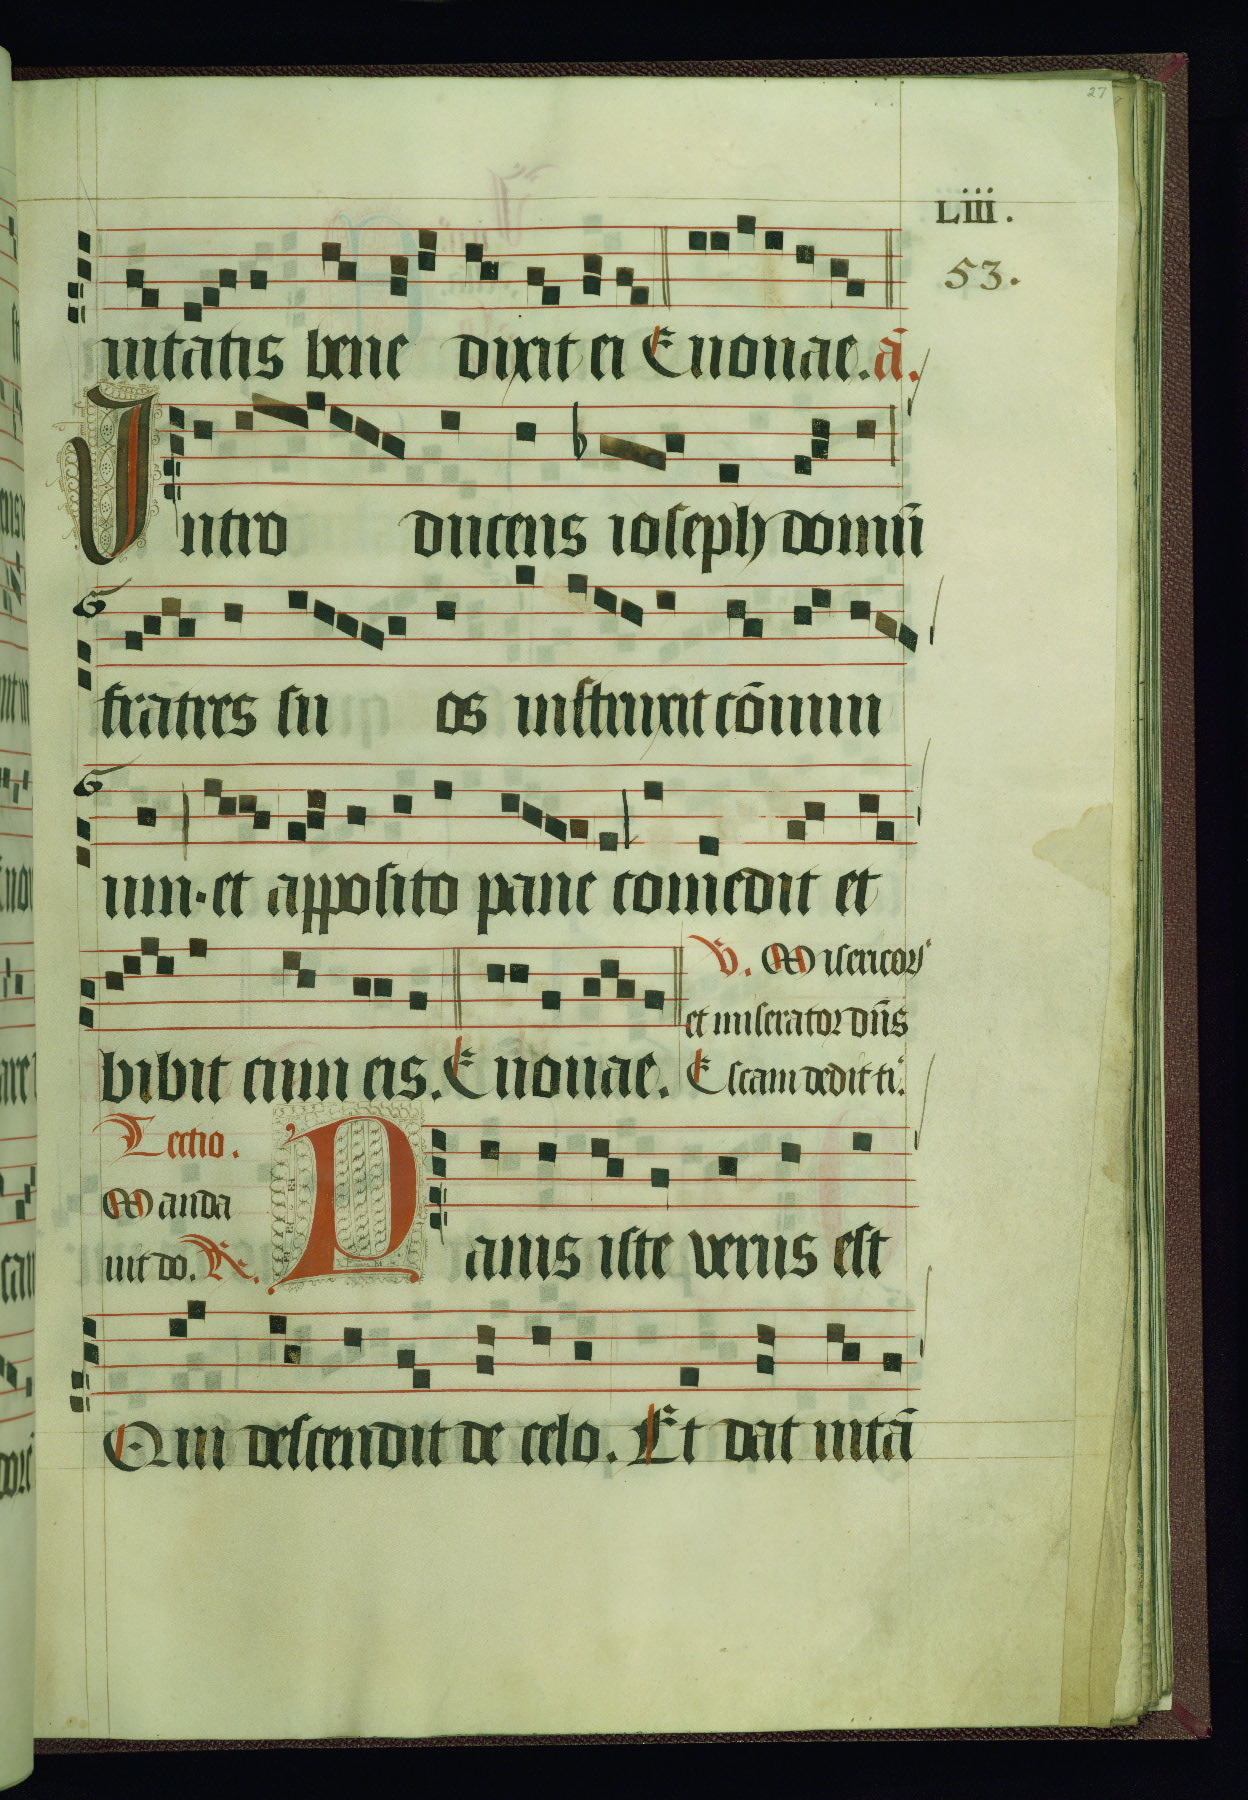 27
Liii.
53.
uitatis bene dixit ei Euouae. ā.
Intro ducens ioseph domū
fratres su os instruxit cōuiui
ium. et apposito pane comedit et
bibit cum eis. Euouae.
V̄. Misericors
et miserator dn̄s
Escam dedit ti.
Lectio.
Manda
uit do. R̄.
Panis iste verus est
Qui descendit de celo. Et dat uitā